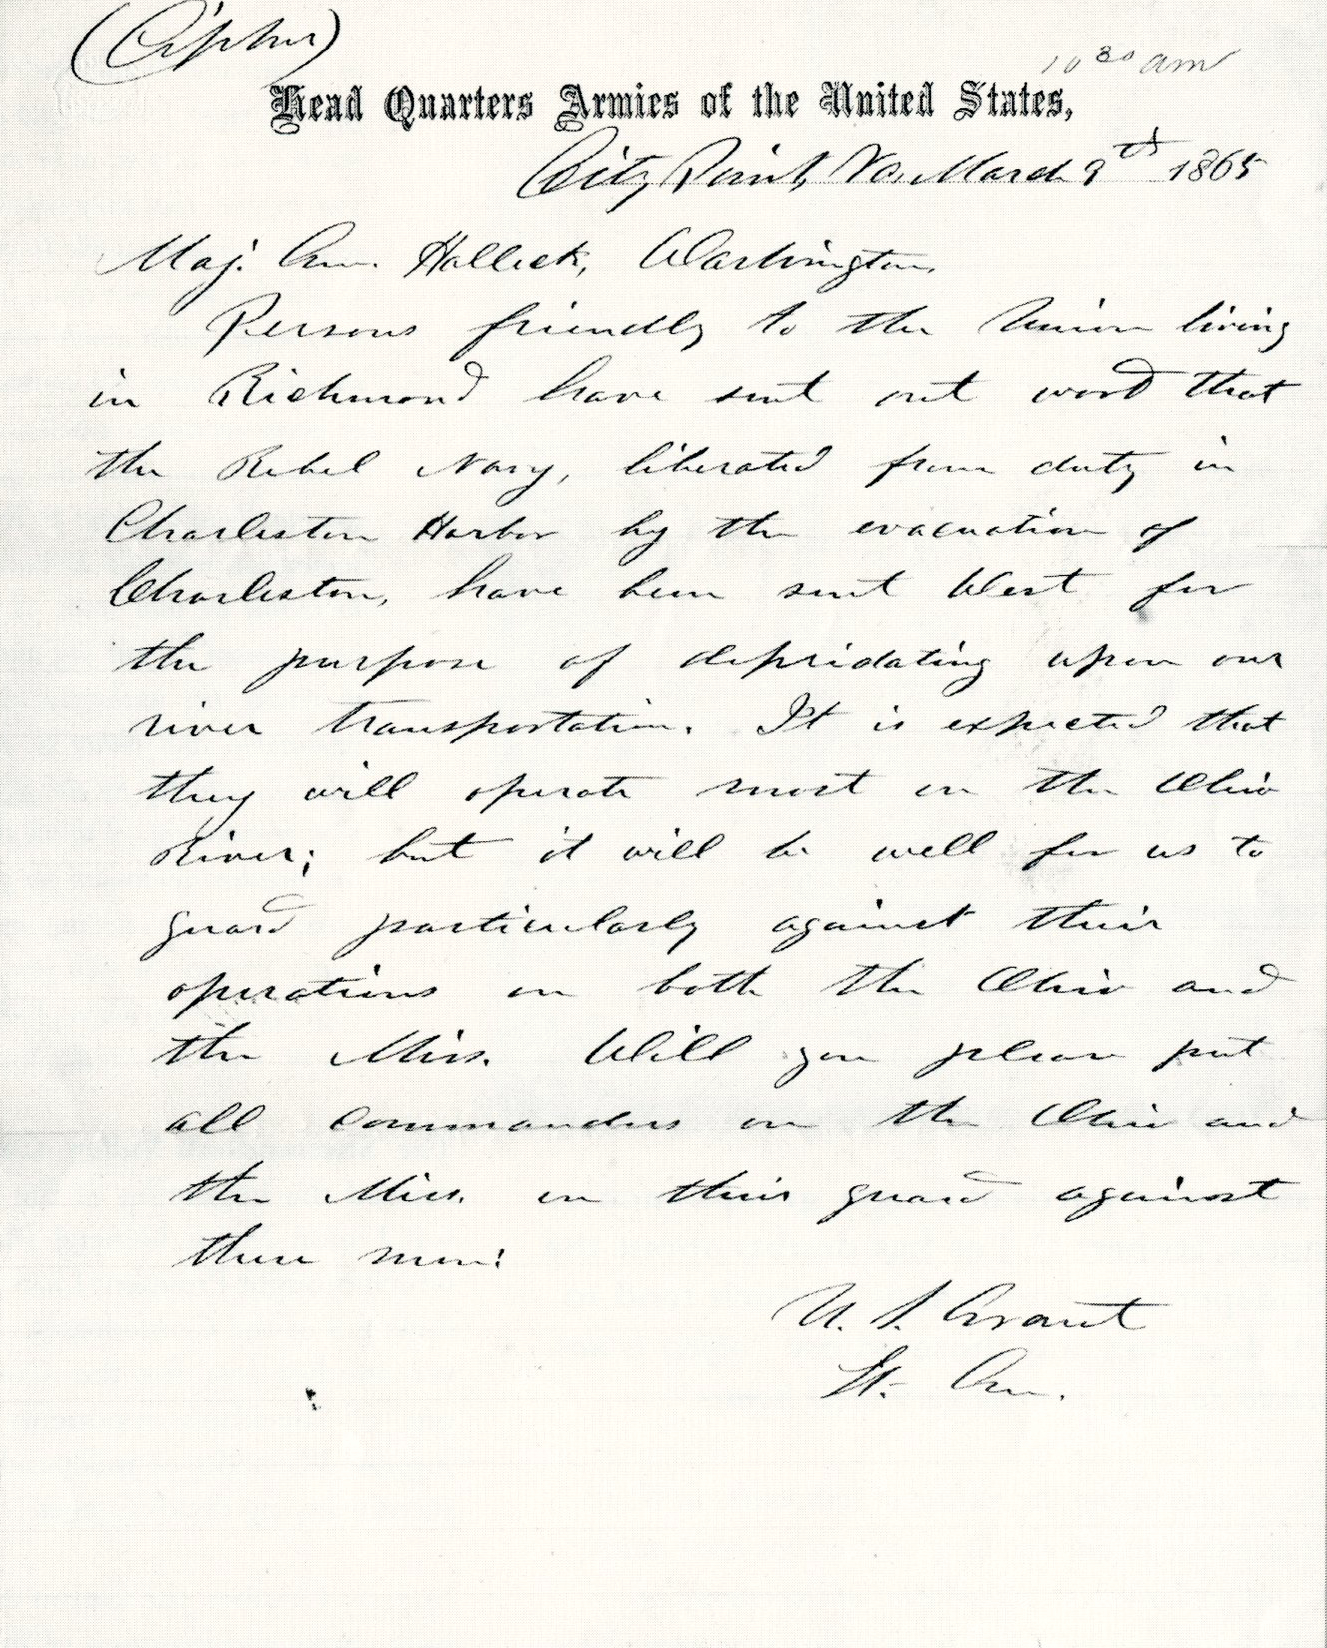 (Cipher)
10 30 am
Head Quarters Armies of the United States,
City Point, Va, March 9th 1865
Maj. Gen. Halleck, Washington,
Persons friendly to the Union living
in Richmond have sent out word that
the Rebel Navy, liberated from duty in
Charleston Harbor by the evacuation of
Charleston, have been sent West for
the purpose of depridating upon our
river transportation. It is expected that
they will operate most on the Ohio
River; but it will be well for us to
guard particularly against their
operations on both the Ohio and
the Miss. Will you please put
all commanders on the Ohio and
the Miss. on their guard against
these men.
U. S. Grant
Lt. Gen.